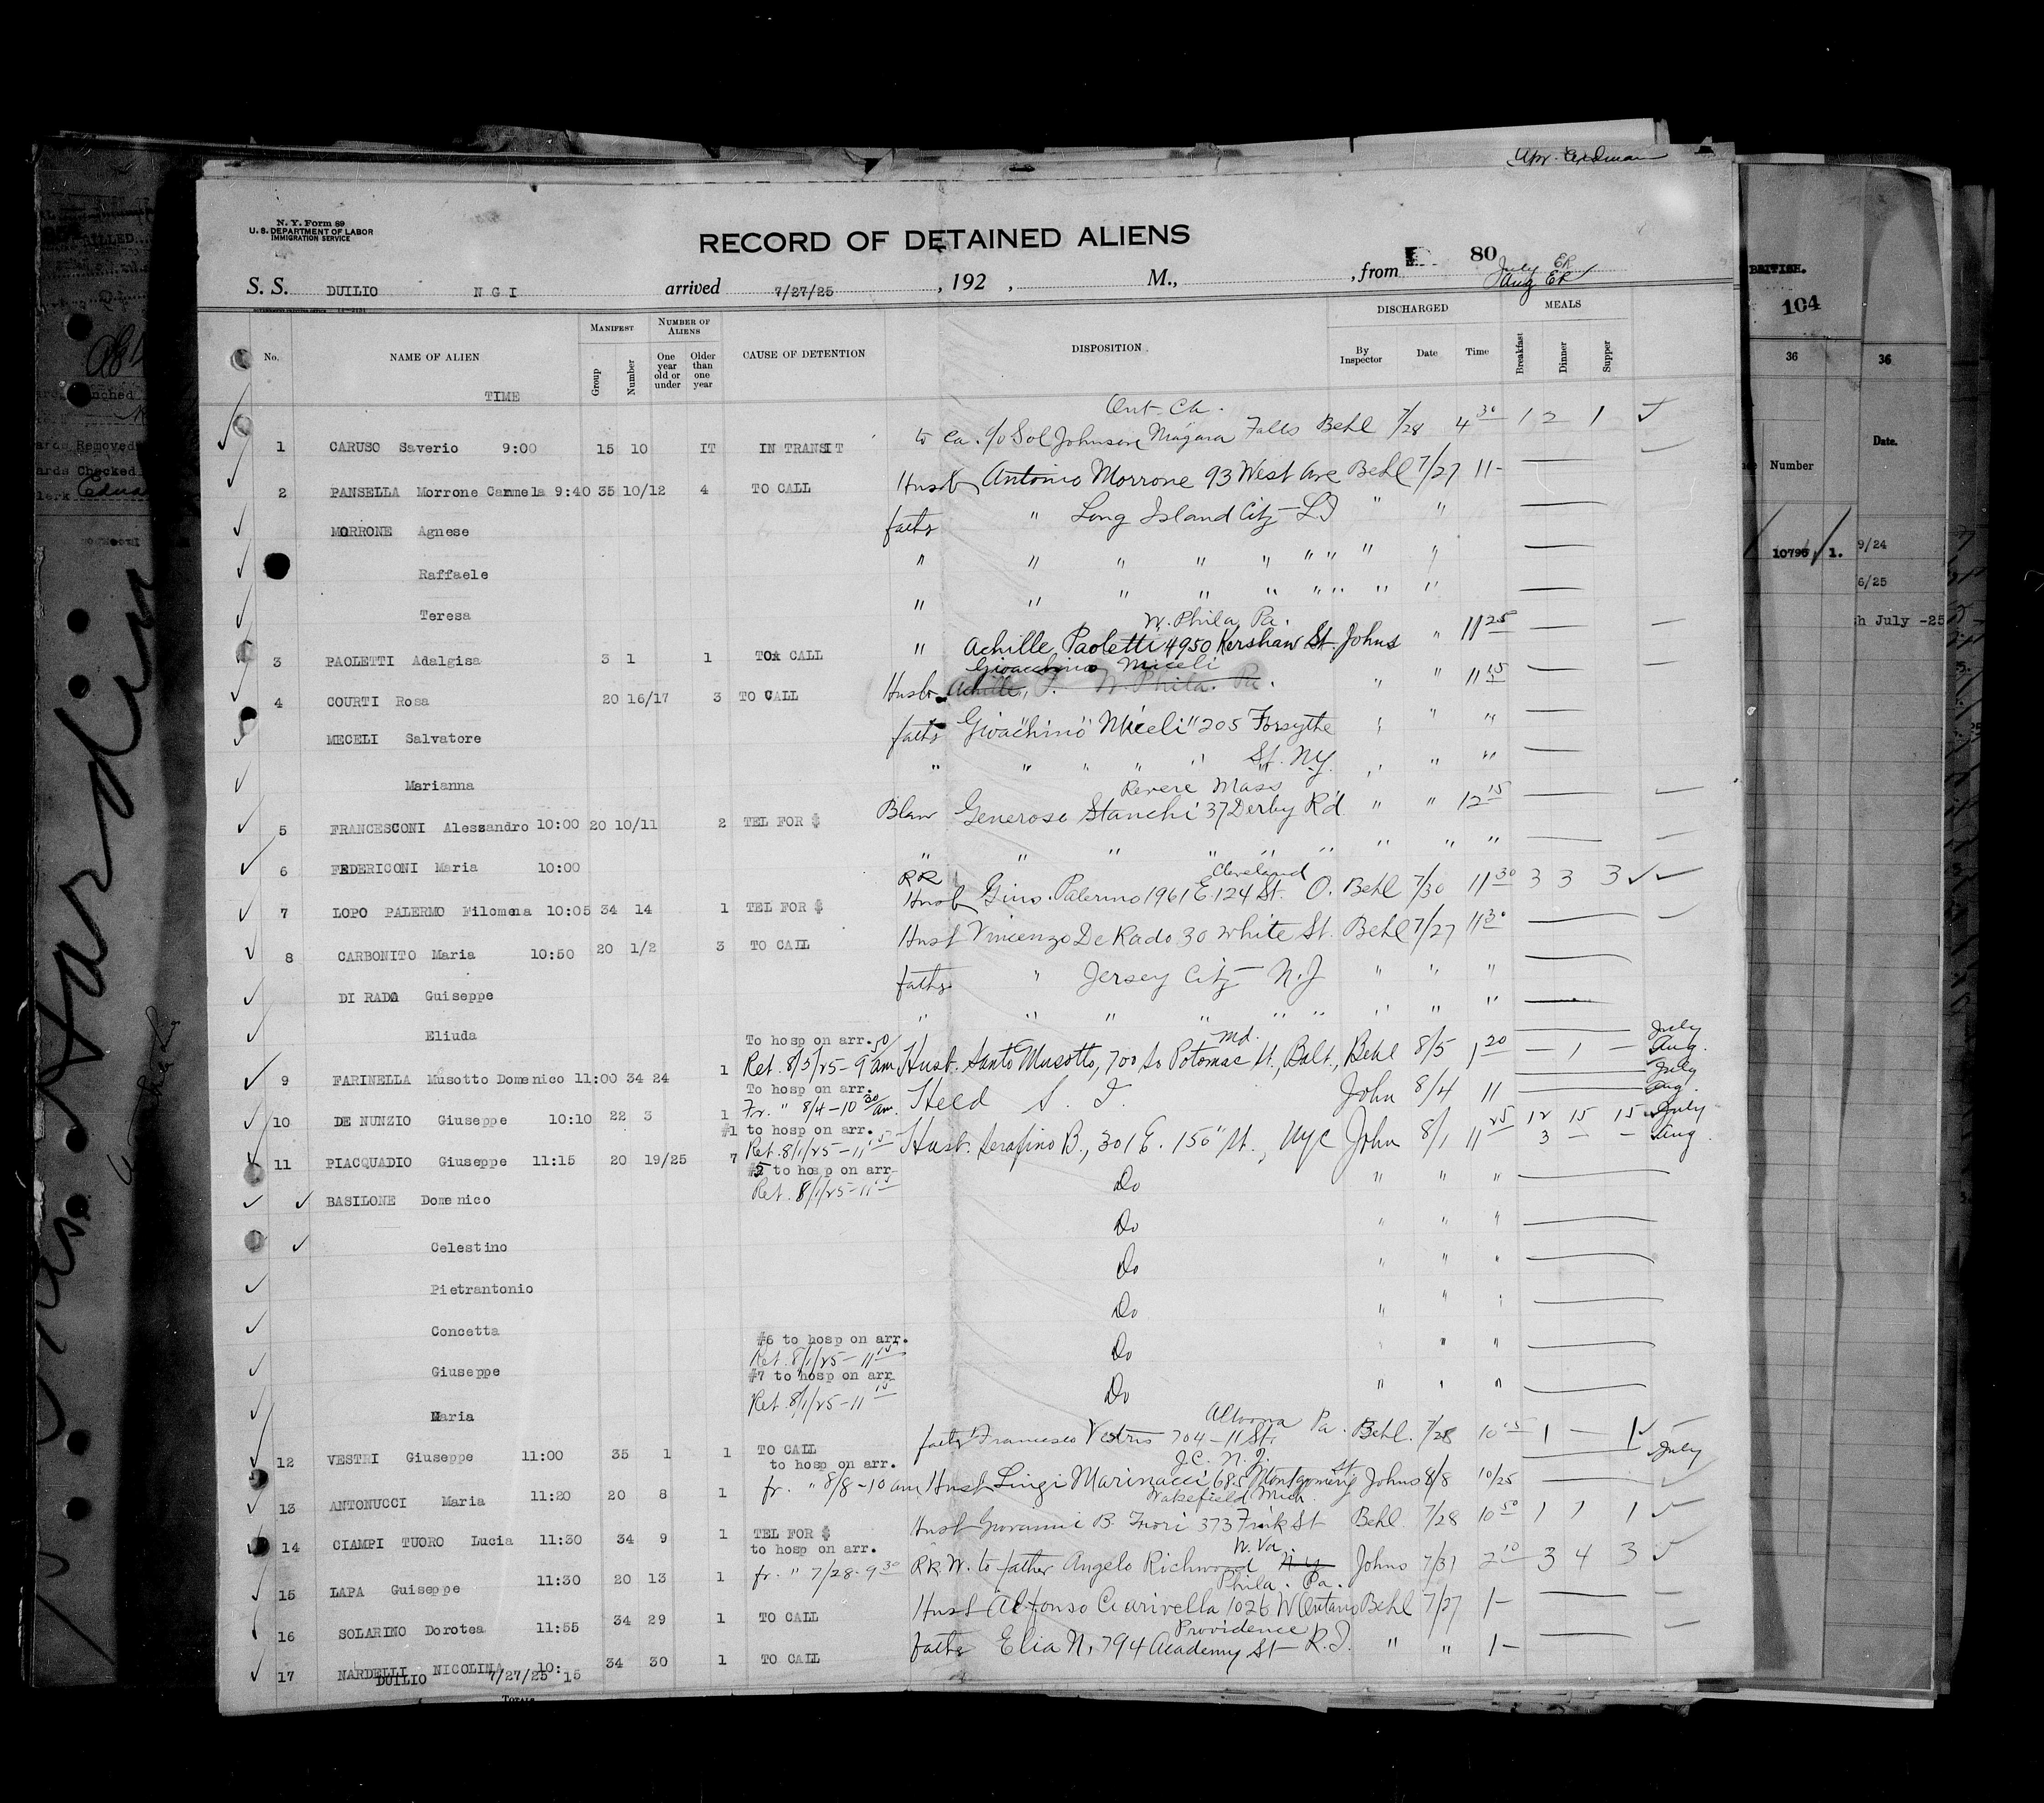 Apr.
N. Y. Form 89
U. S. DEPARTMENT OF LABOR
IMMIGRATION SERVICE
RECORD OF DETAINED ALIENS
80
July ER
Aug ER
S. S. DUILIO N G I arrived 7/27/25, 192 , M., , from
No. NAME OF ALIEN TIME MANIFEST Group Number NUMBER OF ALIENS One year old or under Older than one year CAUSE OF DETENTION DISPOSITION DISCHARGED By Inspector Date Time MEALS Breakfast Dinner Supper
Ont. Ca.
1 CARUSO Saverio 9:00 15 10 IT IN TRANSIT to Ca. c/o Sol Johnson Niagara Falls Behl 7/28 4 30 1 2 1
2 PANSELLA Morrone Carmela 9:40 35 10/12 4 TO CALL Husb Antonio Morrone 93 West Ave Behl 7/27 11 -
MORRONE Agnese faths " Long Island City L I " "
Raffaele " " " " " " " " "
Teresa " " " " " " " " "
W. Phila Pa.
3 PAOLETTI Adalgisa 3 1 1 TO CALL " Achille Paoletti 4950 Kershaw St Johns " 11 25
Gioacchino Miceli
4 COURTI Rosa 20 16/17 3 TO CALL Husb Achille P. W. Phila. Pa. " " 11 15
MECELI Salvatore faths Gioachino Miceli 205 Forsythe " " "
St. N.Y.
Marianna " " " " " " " "
Revere Mass
5 FRANCESCONI Alessandro 10:00 20 10/11 2 TEL FOR $ Blaw Generoso Stanchi 37 Derby Rd " " 12 15
6 FEDERICONI Maria 10:00 " " " " " " " " "
RR Cleveland
7 LOPO PALERMO Filomena 10:05 34 14 1 TEL FOR $ Husb Gino Palermo 1961 E. 124 St. O. Behl 7/30 11 30 3 3 3
8 CARBONITO Maria 10:50 20 1/2 3 TO CALL Husb Vincenzo De Rado 30 White St. Behl 7/27 11 30
DI RADO Guiseppe faths " Jersey City N.J " " "
Eliuda " " " " " " " " "
To hosp on arr. Md. July
9 FARINELLA Musotto Domenico 11:00 34 24 1 Ret. 8/5/25 - 9 50/am Husb. Santo Musotto, 700 So Potomac St., Balt., Behl 8/5 1 20 - 1 - Aug.
To hosp on arr. July
10 DE NUNZIO Giuseppe 10:10 22 3 1 Fr. " 8/4 - 10 30/am. Held S. I. John 8/4 11 Aug.
#1 to hosp on arr. 12 15 15 July
11 PIACQUADIO Giuseppe 11:15 20 19/25 7 Ret. 8/1/25 - 11 15 Husb. Serafino B., 301 E. 150" St., Nyc John 8/1 11 25 3 - - Aug.
#2 to hosp on arr
BASILONE Domenico Ret. 8/1/25 - 11 15 Do " " "
Celestino Do " " "
Pietrantonio Do " " "
Concetta Do " " "
#6 to hosp on arr.
Giuseppe Ret. 8/1/25 - 11 15 Do " " "
#7 to hosp on arr
Maria Ret. 8/1/25 - 11 15 Do " " "
Altoona Pa.
12 VESTRI Giuseppe 11:00 35 1 1 TO CALL faths Francesco Vestris 704 - 11 St. Behl. 7/28 10 15 1 - 1
to hosp on arr. J.C. N.J. July
13 ANTONUCCI Maria 11:20 20 8 1 fr. " 8/8 - 10 am Husb Luigi Marinacci 685 Montgomery St Johns 8/8 10/25
Wakefield Mich.
14 CIAMPI TUORO Lucia 11:30 34 9 1 TEL FOR $ Husb Giovanni B. Fiori 373 St Behl. 7/28 10 50 1 1 1
to hosp on arr. W. Va.
15 LAPA Guiseppe 11:30 20 13 1 fr. " 7/28 - 9 30 RR. W. to father Angelo Richwood N Y Johns 7/31 2 10 3 4 3
Phila. Pa.
16 SOLARINO Dorotea 11:55 34 29 1 TO CALL Husb Alfonso Ciarivella 1026 W Ontario Behl 7/27 1 -
Providence
17 NARDELLI NICOLINA 10:15 34 30 1 TO CALL faths Elia N, 794 Academy St R.I. " " 1 -
DUILIO 7/27/25
TOTALS
BRITISH.
104
36 36
Number Date.
10796 1. 9/24
6/25
July -25